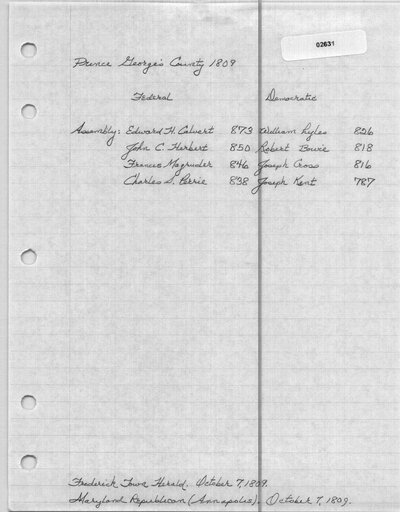 02631
Prince George's County 1809
Federal Democratic
Assembly: Edward H. Calvert 873 William Lyles 826
John C. Herbert 850 Robert Bowie 818
Francis Magruder 846 Joseph Cross 816
Charles S. Perrie 838 Joseph Kent 787
Frederick Town Herald. October 7, 1809.
Maryland Republican (Annapolis). October 7, 1809.